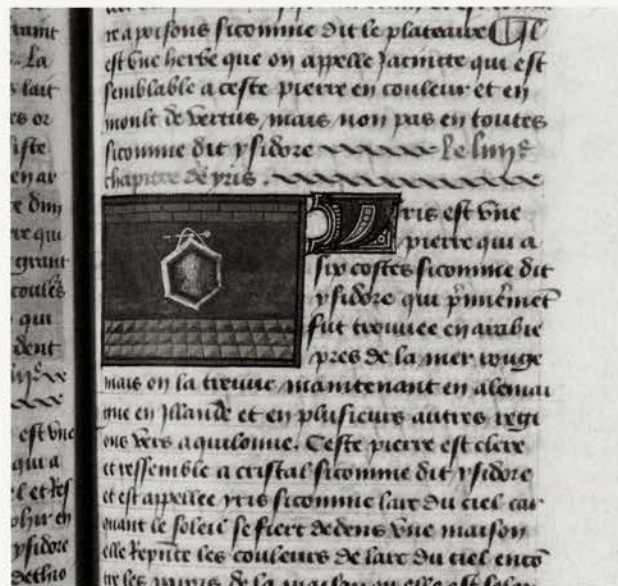 rant
La
lait
es or
iste
en ar
e dun
re qui
grant
coules
qui
dent
est vne
qui a
l et res
phir en
ysidore
re a poisons sicomme dit le plateaire Il
est vne herbe que on appelle Jacincte qui est
semblable a ceste pierre en couleur et en
moult de vertus mais non pas en toutes
sicomme dit ysidore Le
chapitre de yris .
Yris est vne
pierre qui a
six costes sicomme dit
ysidore qui p̄mieremēt
fut trouuee en arabie
pres de la mer rouge
mais on la treuue maintenant en alemai
gne en Jllande et en plusieurs autres regi
ons vers aquilonne. Ceste pierre est clere
et ressemble a cristal sicomme dit ysidore
et est appellee yris sicomme larc du ciel car
quant le soleil se fiert dedens vne maison
elle les couleurs de larc du ciel encō
tre les de la maison ou elle est